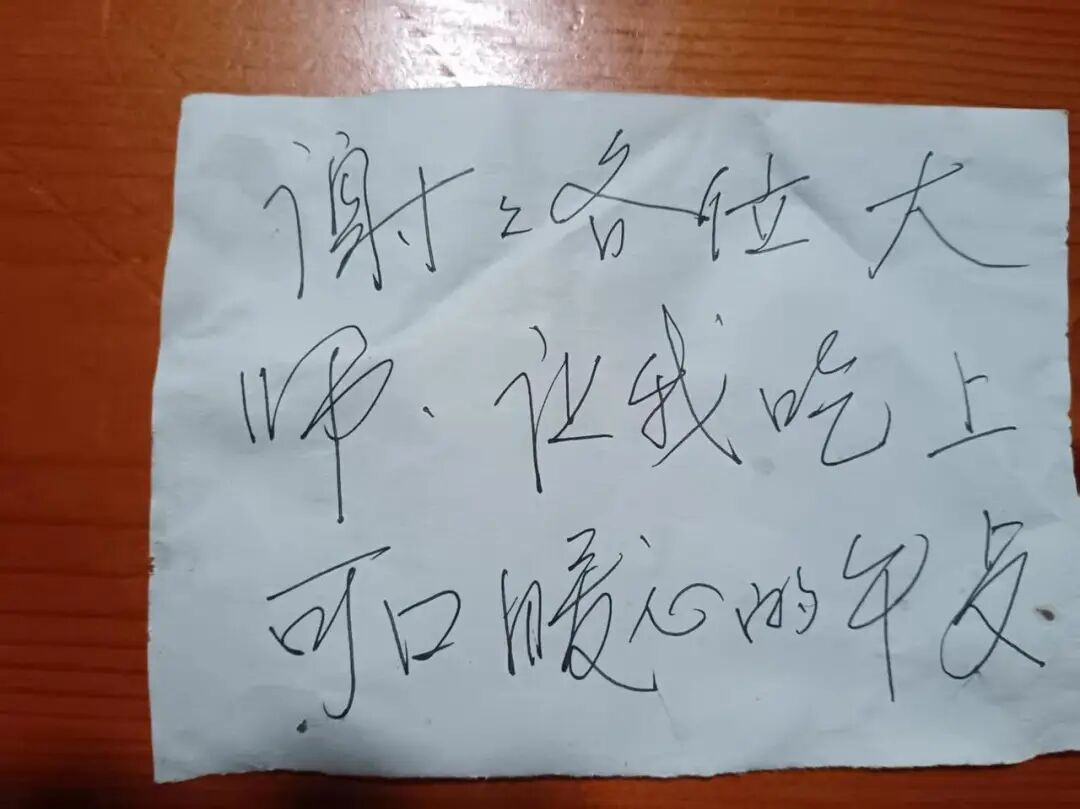 谢谢各位大
师、让我吃上
可口暖心的年